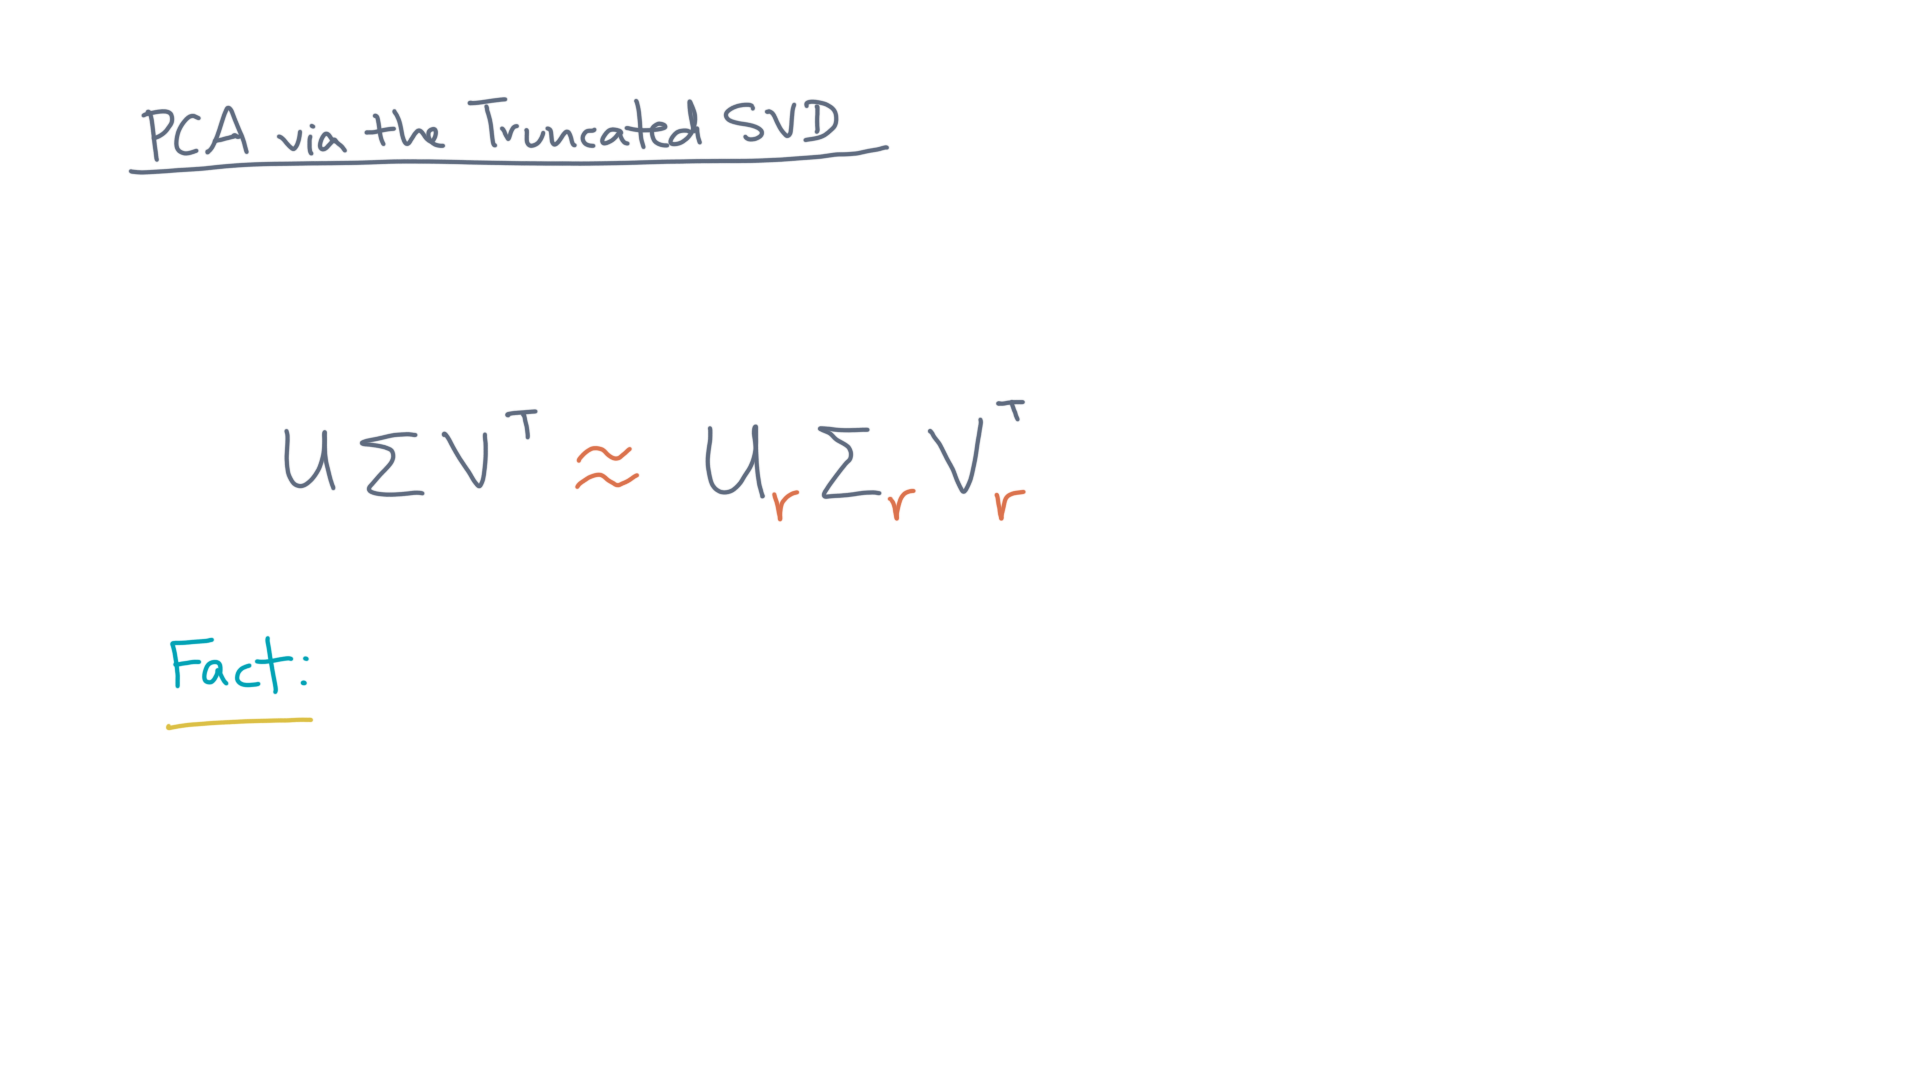 PCA via the Truncated SVD
U Σ V^T ≈ U_r Σ_r V_r^T
Fact: